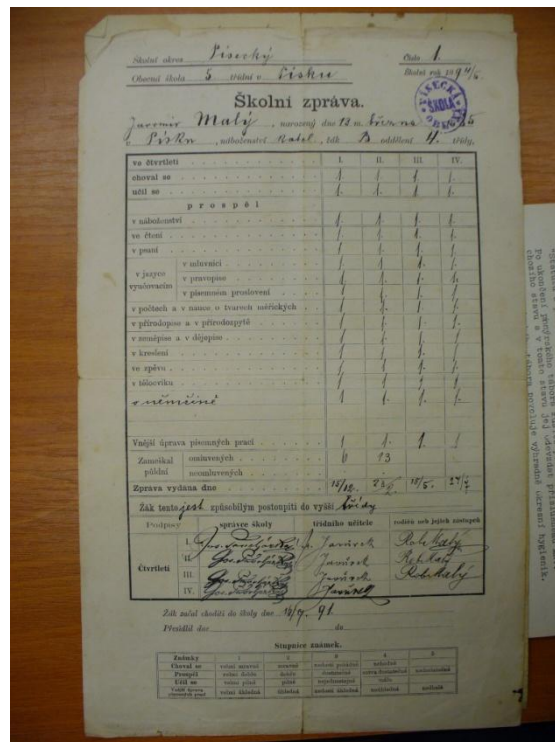 Školní okres Písecký Číslo 1.
Obecná škola 5 třídní v Písku Školní rok 1894/5
PÍSECKÁ ŠKOLA OBECNÁ
Školní zpráva.
Jaromír Malý, narozený dne 13 m. března
v Písku, náboženství katol., žák B oddělení 4. třídy,
ve čtvrtletí I. II. III. IV.
choval se 1 1 1 1.
učil se 1. 1. 1 1.
prospěl
v náboženství 1 1 1 1.
ve čtení 1 1. 1. 1.
v psaní 1. 1. 1. 1.
v jazyce vyučovacím
v mluvnici 1 1 1. 1.
v pravopise 1 1. 1. 1.
v písemném proslovení 1 1. 1. 1.
v počtech a v nauce o tvarech měřických 1 1. 1. 1.
v přírodopise a v přírodozpytě 1 1. 1. 1.
v zeměpise a v dějepise 1 1. 1. 1.
v kreslení 1 1 1. 1.
ve zpěvu 1 1 1. 1.
v tělocviku 1 1 1 1.
v němčině 1 1. 1. 1.
Vnější úprava písemných prací 1 1. 1 1
Zameškal půldní
omluvených 6 13
neomluvených
Zpráva vydána dne
Žák tento jest způsobilým postoupiti do vyšší třídy
Podpisy správce školy třídního učitele rodičů neb jejich zástupce
Čtvrtletí
I. Javůrek Rob. Malý
II. Javůrek Rob. Malý
III. Javůrek Rob. Malý
IV. Javůrek
Žák začal choditi do školy dne 91.
Přesídlil dne do
Stupnice známek.
Známky 1 2 3 4 5
Choval se
Prospěl velmi dobře dobře dostatečně nedostatečně
Učil se velmi pilně pilně
Vnější úprava písemných prací velmi úhledná úhledná méně úhledná neúhledná
Po ukončení
chozího stavu a v tomto stavu jej odevzdat
tábora povoluje výhradně okresní hygienik.